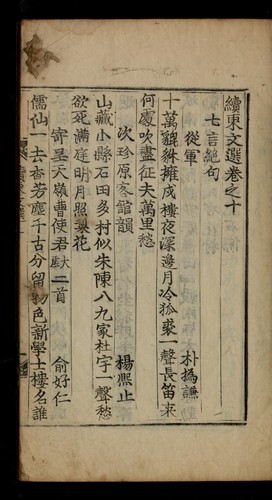 續東文選卷之十
七言絶句
從軍 朴撝謙
十萬貔貅擁戍樓夜深邊月冷狐裘一聲長笛來
何處吹盡征夫萬里愁
次珍原客館韻 楊熙止
山藏小縣石田多村似朱陳八九家杜宇一聲愁
欲死滿庭明月照梨花
寄呈天嶺曹使君獻二首 俞好仁
儒仙一去杳芳塵千古分留物色新學士樓名誰